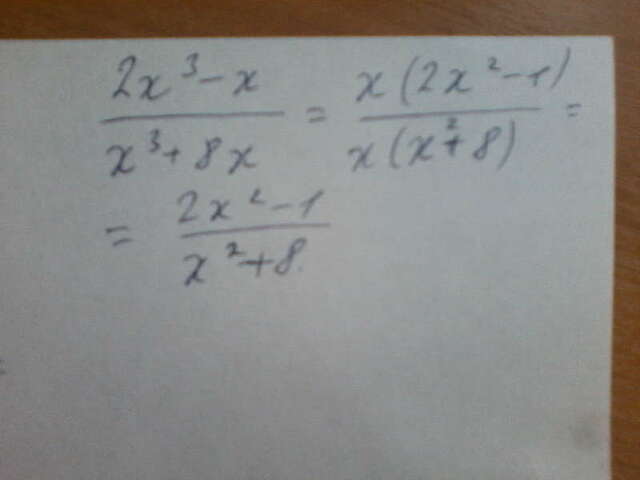 (2x³-x)/(x³+8x) = x(2x²-1)/x(x²+8) =
= (2x²-1)/(x²+8.)